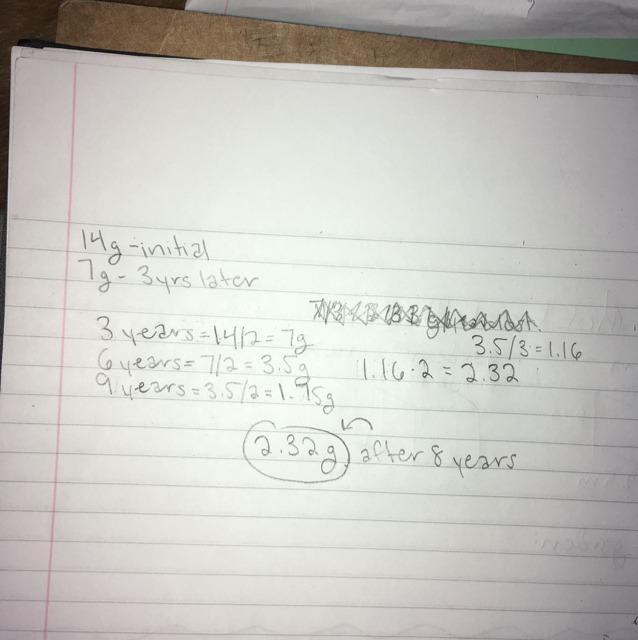 14g-initial
7g - 3yrs later
3 years=14/2= 7g
3.5/3=1.16
6 years= 7/2 = 3.5g
1.16·2 = 2.32
9 years=3.5/2=1.75g
2.32g after 8 years